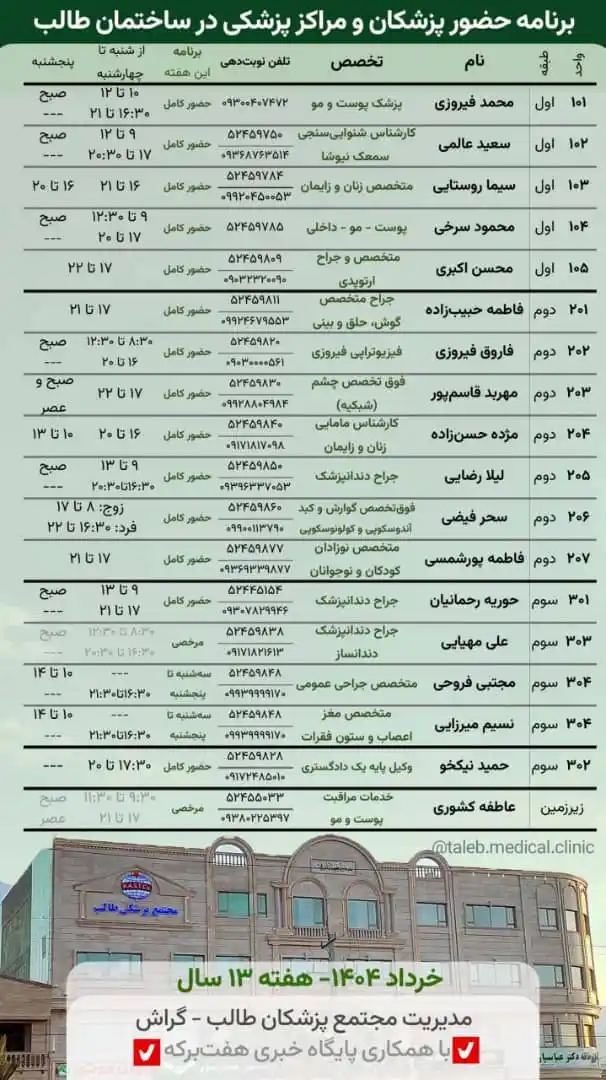 برنامه حضور پزشکان و مراکز پزشکی در ساختمان طالب
واحد طبقه نام تخصص تلفن نوبت‌دهی برنامه این هفته از شنبه تا چهارشنبه پنجشنبه
۱۰۱ اول محمد فیروزی پزشک پوست و مو ۰۹۳۰۰۴۰۷۴۷۲ حضور کامل ۱۰ تا ۱۲ صبح
۱۶:۳۰ تا ۲۱ ---
۱۰۲ اول سعید عالمی کارشناس شنوایی‌سنجی سمعک نیوشا ۵۲۴۵۹۷۵۰ حضور کامل ۹ تا ۱۲ صبح
۰۹۳۶۸۷۶۳۵۱۴ ۱۷ تا ۲۰:۳۰ ---
۱۰۳ اول سیما روستایی متخصص زنان و زایمان ۵۲۴۵۹۷۸۴ حضور کامل ۱۶ تا ۲۱ ۱۶ تا ۲۰
۰۹۹۲۰۴۵۰۰۵۳
۱۰۴ اول محمود سرخی پوست - مو - داخلی ۵۲۴۵۹۷۸۵ حضور کامل ۹ تا ۱۲:۳۰ صبح
۱۷ تا ۲۰ ---
۱۰۵ اول محسن اکبری متخصص و جراح ارتوپدی ۵۲۴۵۹۸۰۹ حضور کامل ۱۷ تا ۲۲
۰۹۰۳۲۳۲۰۰۹۰
۲۰۱ دوم فاطمه حبیب‌زاده جراح متخصص گوش، حلق و بینی ۵۲۴۵۹۸۱۱ حضور کامل ۱۷ تا ۲۱
۰۹۹۲۴۶۷۹۵۵۳
۲۰۲ دوم فاروق فیروزی فیزیوتراپی فیروزی ۵۲۴۵۹۸۲۰ حضور کامل ۸:۳۰ تا ۱۲:۳۰ صبح
۰۹۰۳۰۰۰۰۵۶۱ ۱۶ تا ۲۰ ---
۲۰۳ دوم مهربد قاسم‌پور فوق تخصص چشم (شبکیه) ۵۲۴۵۹۸۳۰ حضور کامل ۱۷ تا ۲۲ صبح و عصر
۰۹۹۲۸۸۰۴۹۸۴
۲۰۴ دوم مژده حسن‌زاده کارشناس مامایی زنان و زایمان ۵۲۴۵۹۸۴۰ حضور کامل ۱۶ تا ۲۰ ۱۰ تا ۱۳
۰۹۱۷۱۸۱۷۰۹۸
۲۰۵ دوم لیلا رضایی جراح دندانپزشک ۵۲۴۵۹۸۵۰ حضور کامل ۹ تا ۱۳ صبح
۰۹۳۹۶۳۳۷۰۵۳ ۱۶:۳۰تا۲۰:۳۰ ---
۲۰۶ دوم سحر فیضی فوق‌تخصص گوارش و کبد آندوسکوپی و کولونوسکوپی ۵۲۴۵۹۸۶۰ حضور کامل زوج: ۸ تا ۱۷
۰۹۹۰۰۱۱۳۷۹۰ فرد: ۱۶:۳۰ تا ۲۲
۲۰۷ دوم فاطمه پورشمسی متخصص نوزادان کودکان و نوجوانان ۵۲۴۵۹۸۷۷ حضور کامل ۱۷ تا ۲۱
۰۹۳۶۹۳۳۹۸۷۷
۳۰۱ سوم حوریه رحمانیان جراح دندانپزشک ۵۲۴۴۵۱۵۴ حضور کامل ۹ تا ۱۳ صبح
۰۹۳۰۷۸۲۹۹۴۶ ۱۷ تا ۲۱ ---
۳۰۳ سوم علی مهیایی جراح دندانپزشک دندانساز ۵۲۴۵۹۸۳۸ مرخصی ۸:۳۰ تا ۱۲:۳۰ صبح
۰۹۱۷۱۸۲۱۶۱۳ ۱۶:۳۰ تا ۲۰:۳۰ ---
۳۰۴ سوم مجتبی فروحی متخصص جراحی عمومی ۵۲۴۵۹۸۴۸ سه‌شنبه تا پنجشنبه --- ۱۰ تا ۱۴
۰۹۹۳۹۹۹۹۱۷۰ ۱۶:۳۰تا۲۱:۳۰ ---
۳۰۴ سوم نسیم میرزایی متخصص مغز اعصاب و ستون فقرات ۵۲۴۵۹۸۴۸ سه‌شنبه تا پنجشنبه --- ۱۰ تا ۱۴
۰۹۹۳۹۹۹۹۱۷۰ ۱۶:۳۰تا۲۱:۳۰ ---
۳۰۲ سوم حمید نیکخو وکیل پایه یک دادگستری ۵۲۴۵۹۸۲۸ حضور کامل ۱۷:۳۰ تا ۲۰ ---
۰۹۱۷۲۴۸۵۰۱۰
زیرزمین عاطفه کشوری خدمات مراقبت پوست و مو ۵۲۴۵۵۰۳۳ مرخصی ۹:۳۰ تا ۱۱:۳۰ صبح
۰۹۳۸۰۲۲۵۳۹۷ ۱۷ تا ۲۱ عصر
@taleb.medical.clinic
مجتمع پزشکی طالب
خرداد ۱۴۰۴- هفته ۱۳ سال
مدیریت مجتمع پزشکان طالب - گراش
با همکاری پایگاه خبری هفت‌برکه